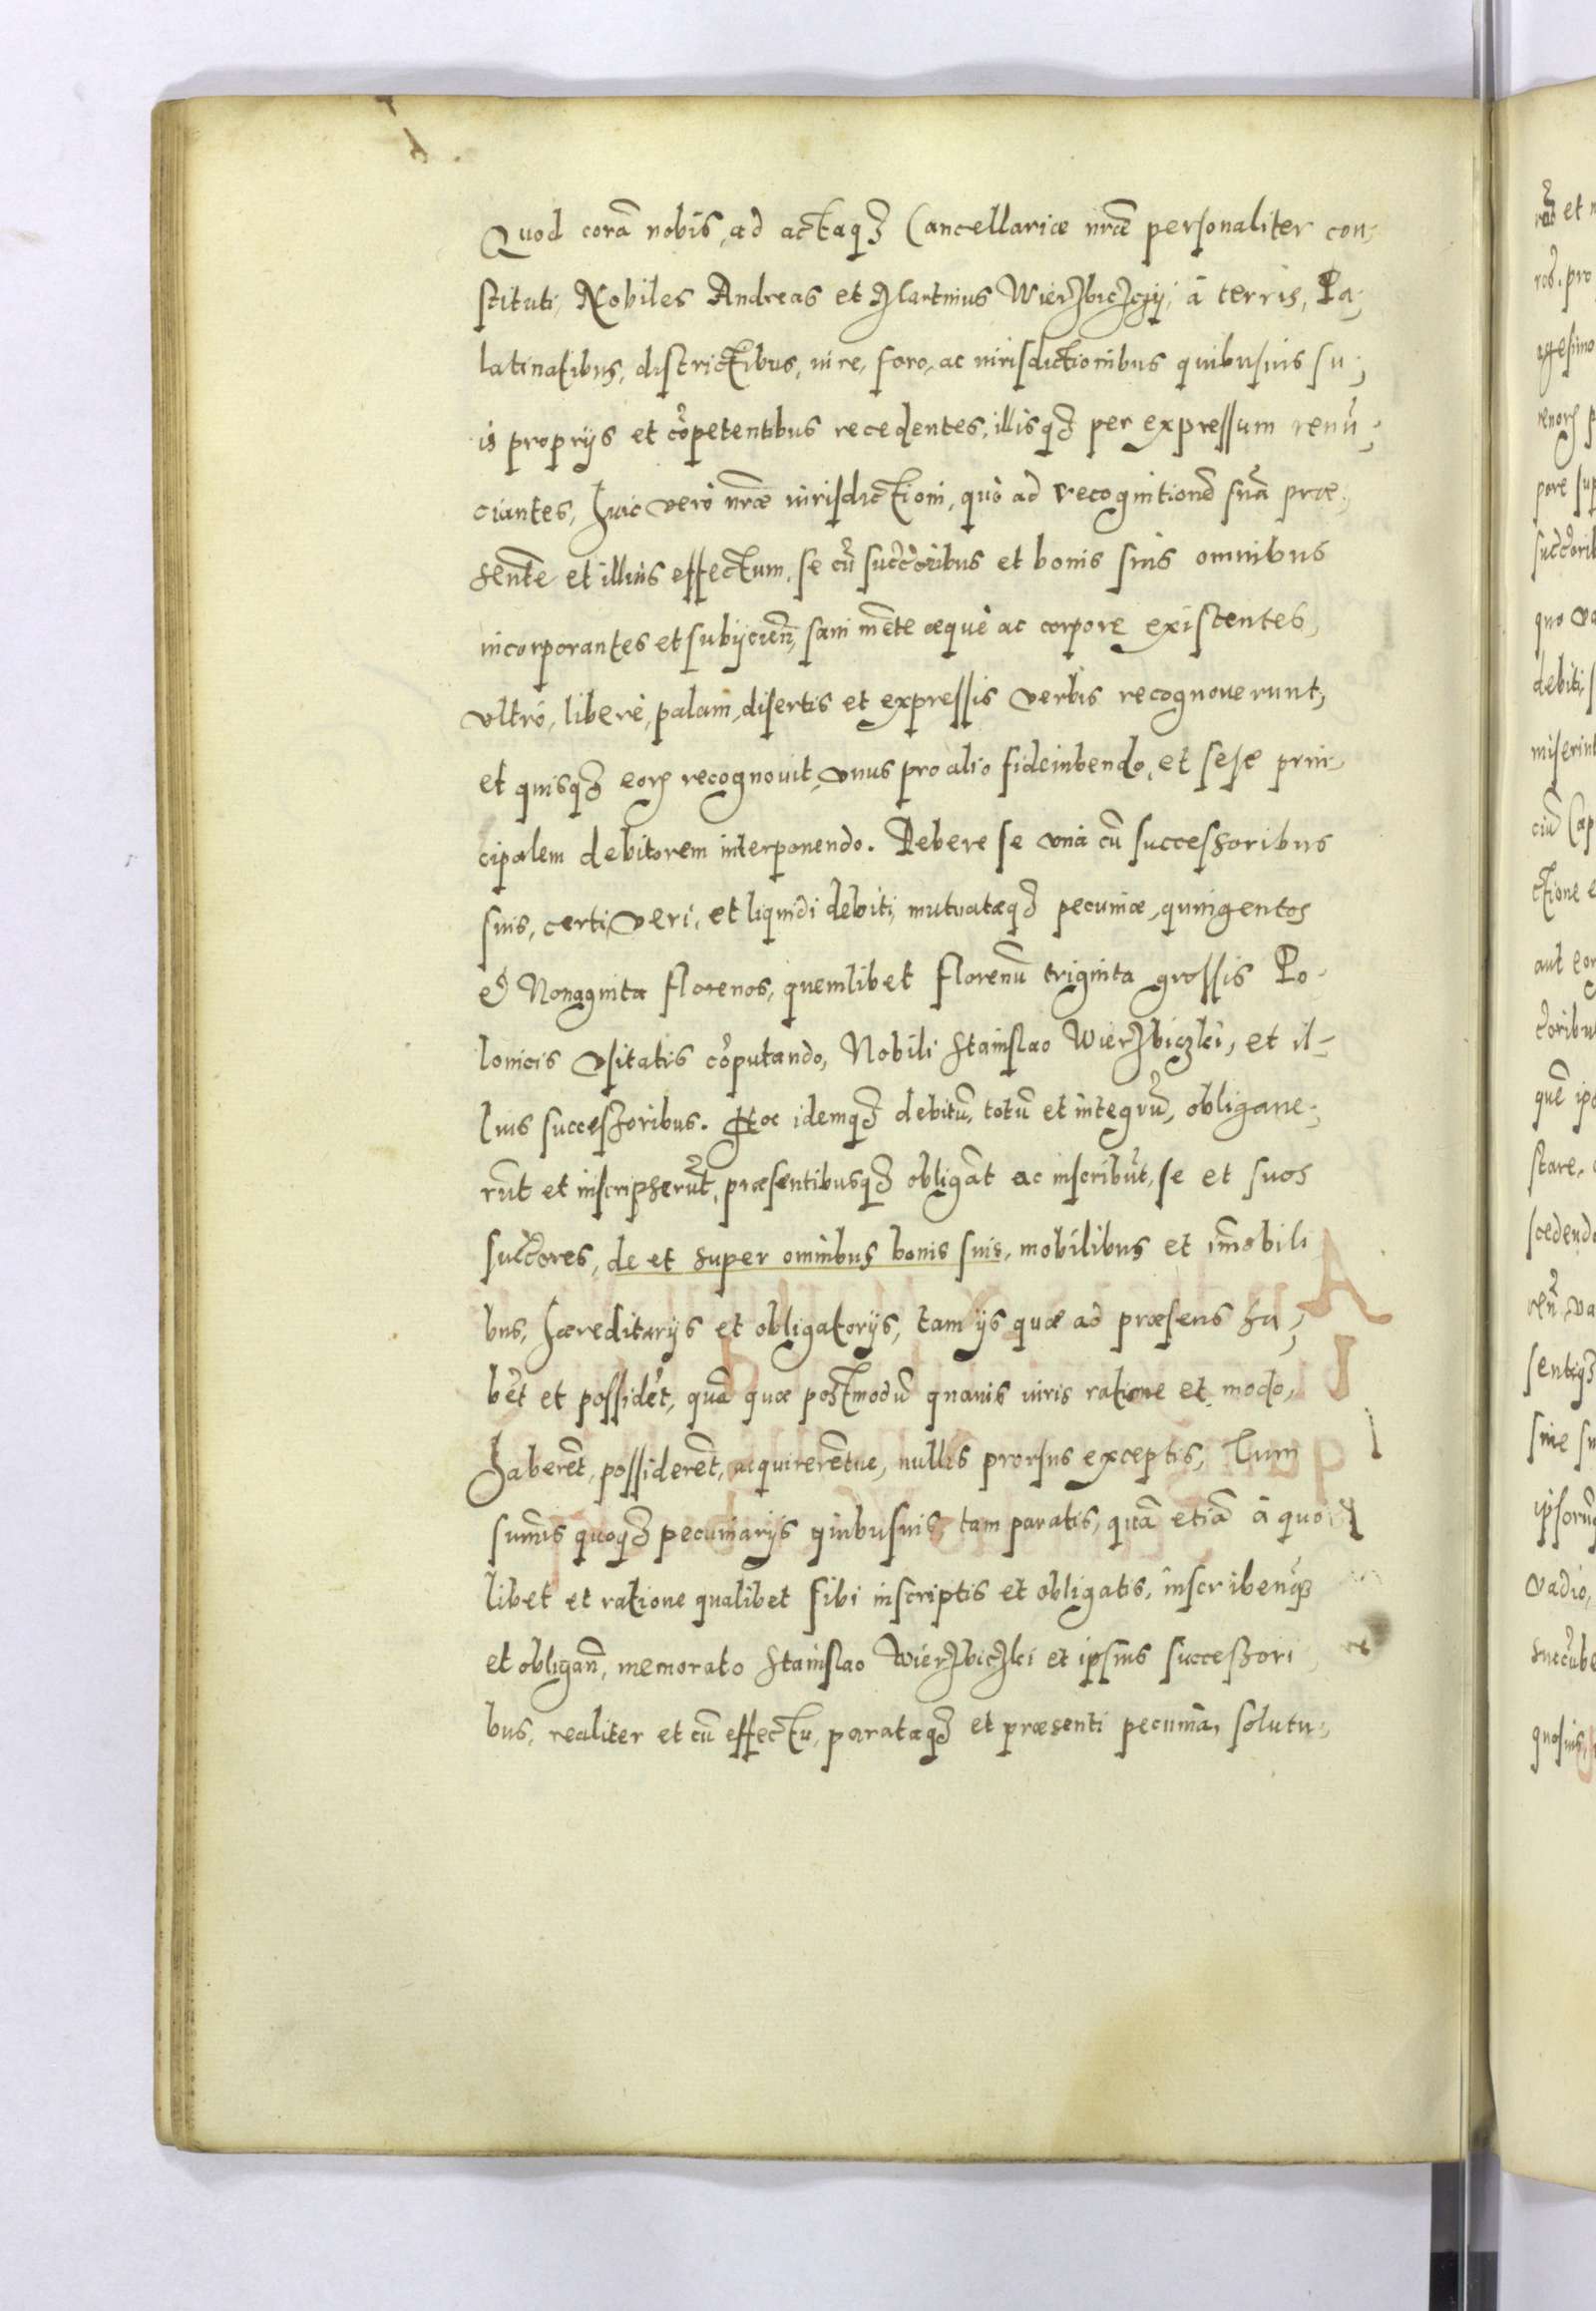 Quod corā nobis, ad actaqȝ Cancellariæ nr̄æ personaliter con-
stituti, Nobiles Andreas et Martinus Wierzbiczcÿ, à terris, Pa-
latinatibus, districtibus, iure, foro, ac iurisdictionibus quibusuis su-
is proprijs et cōpetentibus recedentes, illisqȝ per expressum renū-
ciantes, huic verò nr̄æ iurisdictioni, quò ad recognitionē suā præ-
sentē et illius effectum, se cū succ̄oribus et bonis suis omnibus
incorporantes et subijcien̄, sani mēte æquè ac corpore existentes,
vltrò, liberè, palam, disertis et expressis verbis recognouerunt,
et quisqȝ eorꝝ recognouit, vnus pro alio fideiubendo, et sese prin-
cipalem debitorem interponendo. Debere se vnà cū successoribus
suis, certi, veri, et liquidi debiti, mutuatæqȝ pecuniæ, quingentos
& Nonaginta florenos, quemlibet florenū triginta grossis Po-
lonicis vsitatis cōputando, Nobili Stanislao Wierzbiczki, et il-
lius successoribus. Hoc idemqȝ debitū, totū et integrū, obligaue-
rūt et inscripserūt, præsentibusqȝ obligāt ac inscribūt, se et suos
succ̄ores, de et super omnibus bonis suis, mobilibus et im̄obili
bus, hæreditarijs et obligatorijs, tam ijs quæ ad præsens ha-
bēt et possidēt, quā quæ postmodū quauis iuris ratione et modo,
haberēt, possiderēt, acquirerētue, nullis prorsus exceptis, Tum
sum̄is quoqȝ pecuniarijs quibusuis, tam paratis, quā etiā à quo
libet et ratione qualibet sibi inscriptis et obligatis, inscriben̄qȝ
et obligan̄, memorato Stanislao Wierzbiczki et ipsius successori
bus, realiter et cū effectu, paratæqȝ et præsenti pecunia, solutu-